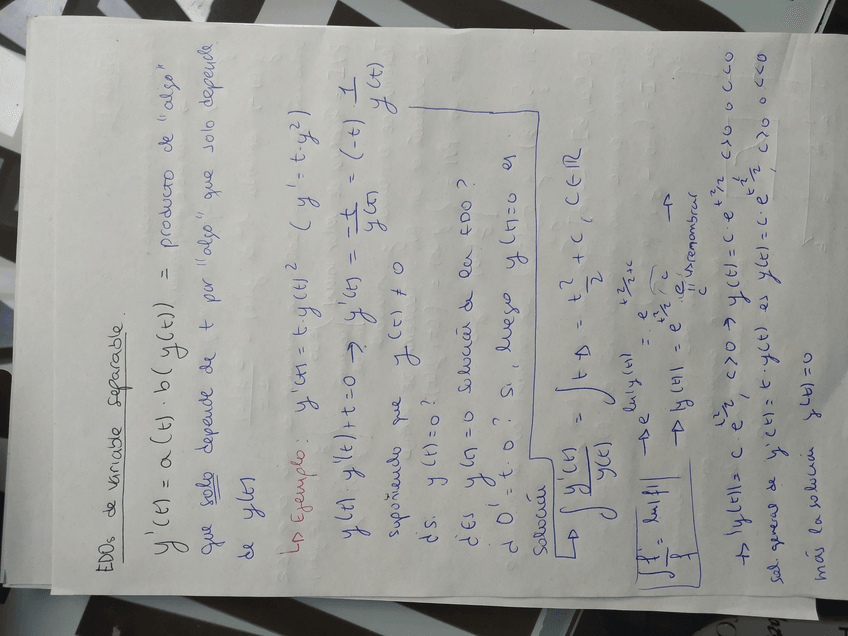 EDOs de variable separable.
y'(t) = a(t) · b(y(t)) = producto de "algo"
que solo depende de t por "algo" que solo depende
de y(t)
↳ Ejemplo: y'(t) = t·y(t)² (y' = t·y²)
y(t)·y'(t)+t=0 → y'(t) = -t/y(t) = (-t)·1/y(t)
suponiendo que y(t) ≠ 0
¿si y(t)=0?
¿Es y(t)=0 solución de la EDO?
¿0' = t·0? Si, luego y(t)=0 es
solución
↳ ∫ y'(t)/y(t) = ∫ t → = t²/2 + c, c∈ℝ
∫ f'/f = ln|f| → e^(ln|y(t)|) = e^(t²/2+c)
→ |y(t)| = e^(t²/2) · e^c → c renombrar
→ |y(t)| = c·e^(t²/2), c>0 → y(t) = c·e^(t²/2) c>0 o c<0
sol. general de y'(t) = t·y(t) es y(t) = c·e^(t²/2), c>0 o c<0
más la solución y(t)=0